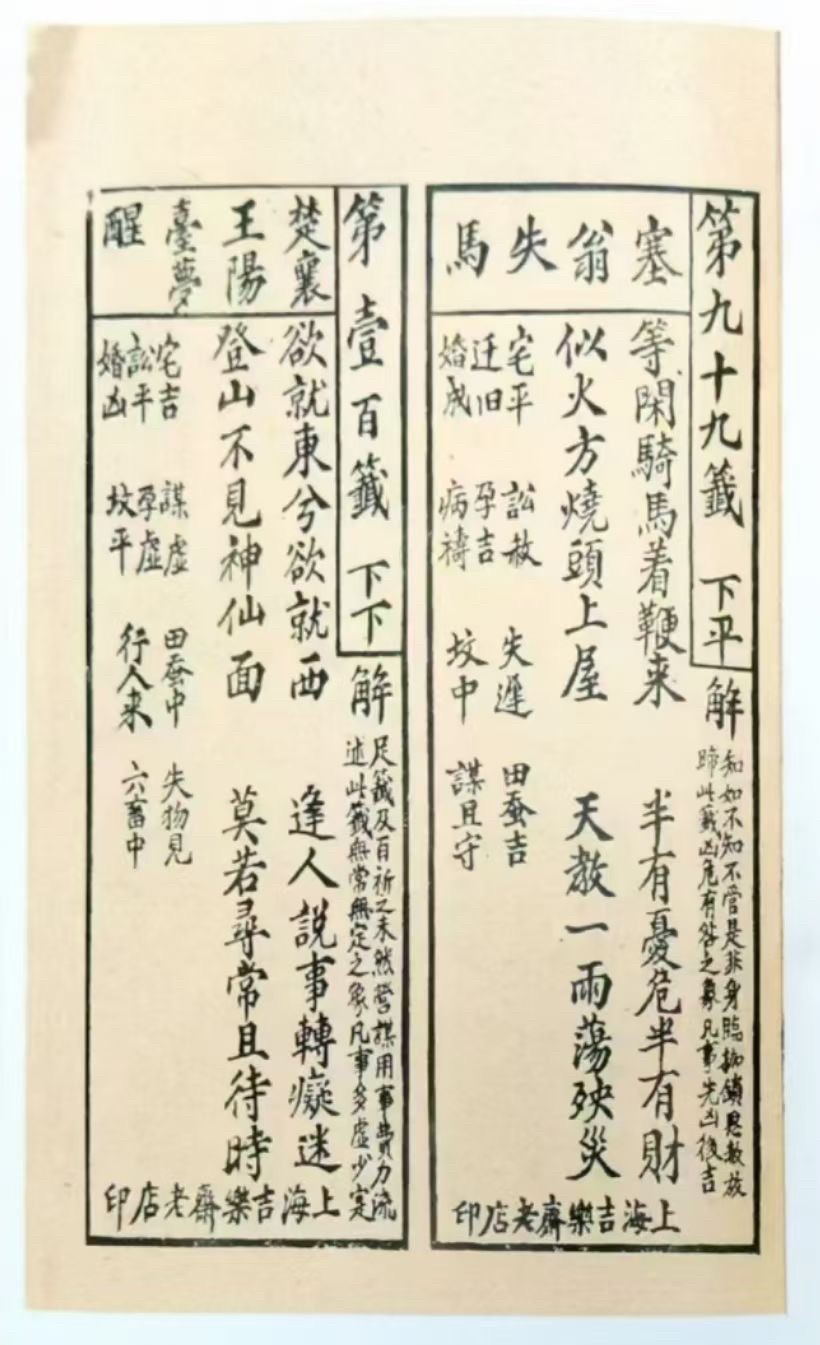 第九十九籤　下平
塞翁失馬
解
知如不知不管是非身臨枷鎖恩赦放
歸此籤凶危有咎之象凡事先凶後吉
等閑騎馬着鞭来　半有憂危半有財
似火方燒頭上屋　天教一雨蕩殃災
宅平　訟赦　失遲　田蚕吉
迁旧　孕吉　坟中　謀且守
婚成　病禱
上海吉樂齋老店印
第壹百籤　下下
楚襄
王陽
臺夢
醒
解
足籤及百祈之未然營謀用事費力流
述此籤無常無定之象凡事多虛少寔
欲就東兮欲就西　逢人説事轉癡迷
登山不見神仙面　莫若尋常且待時
宅吉　謀虛　田蚕中　失物見
訟平　孕虛　行人来　六畜中
婚凶　坟平
上海吉樂齋老店印